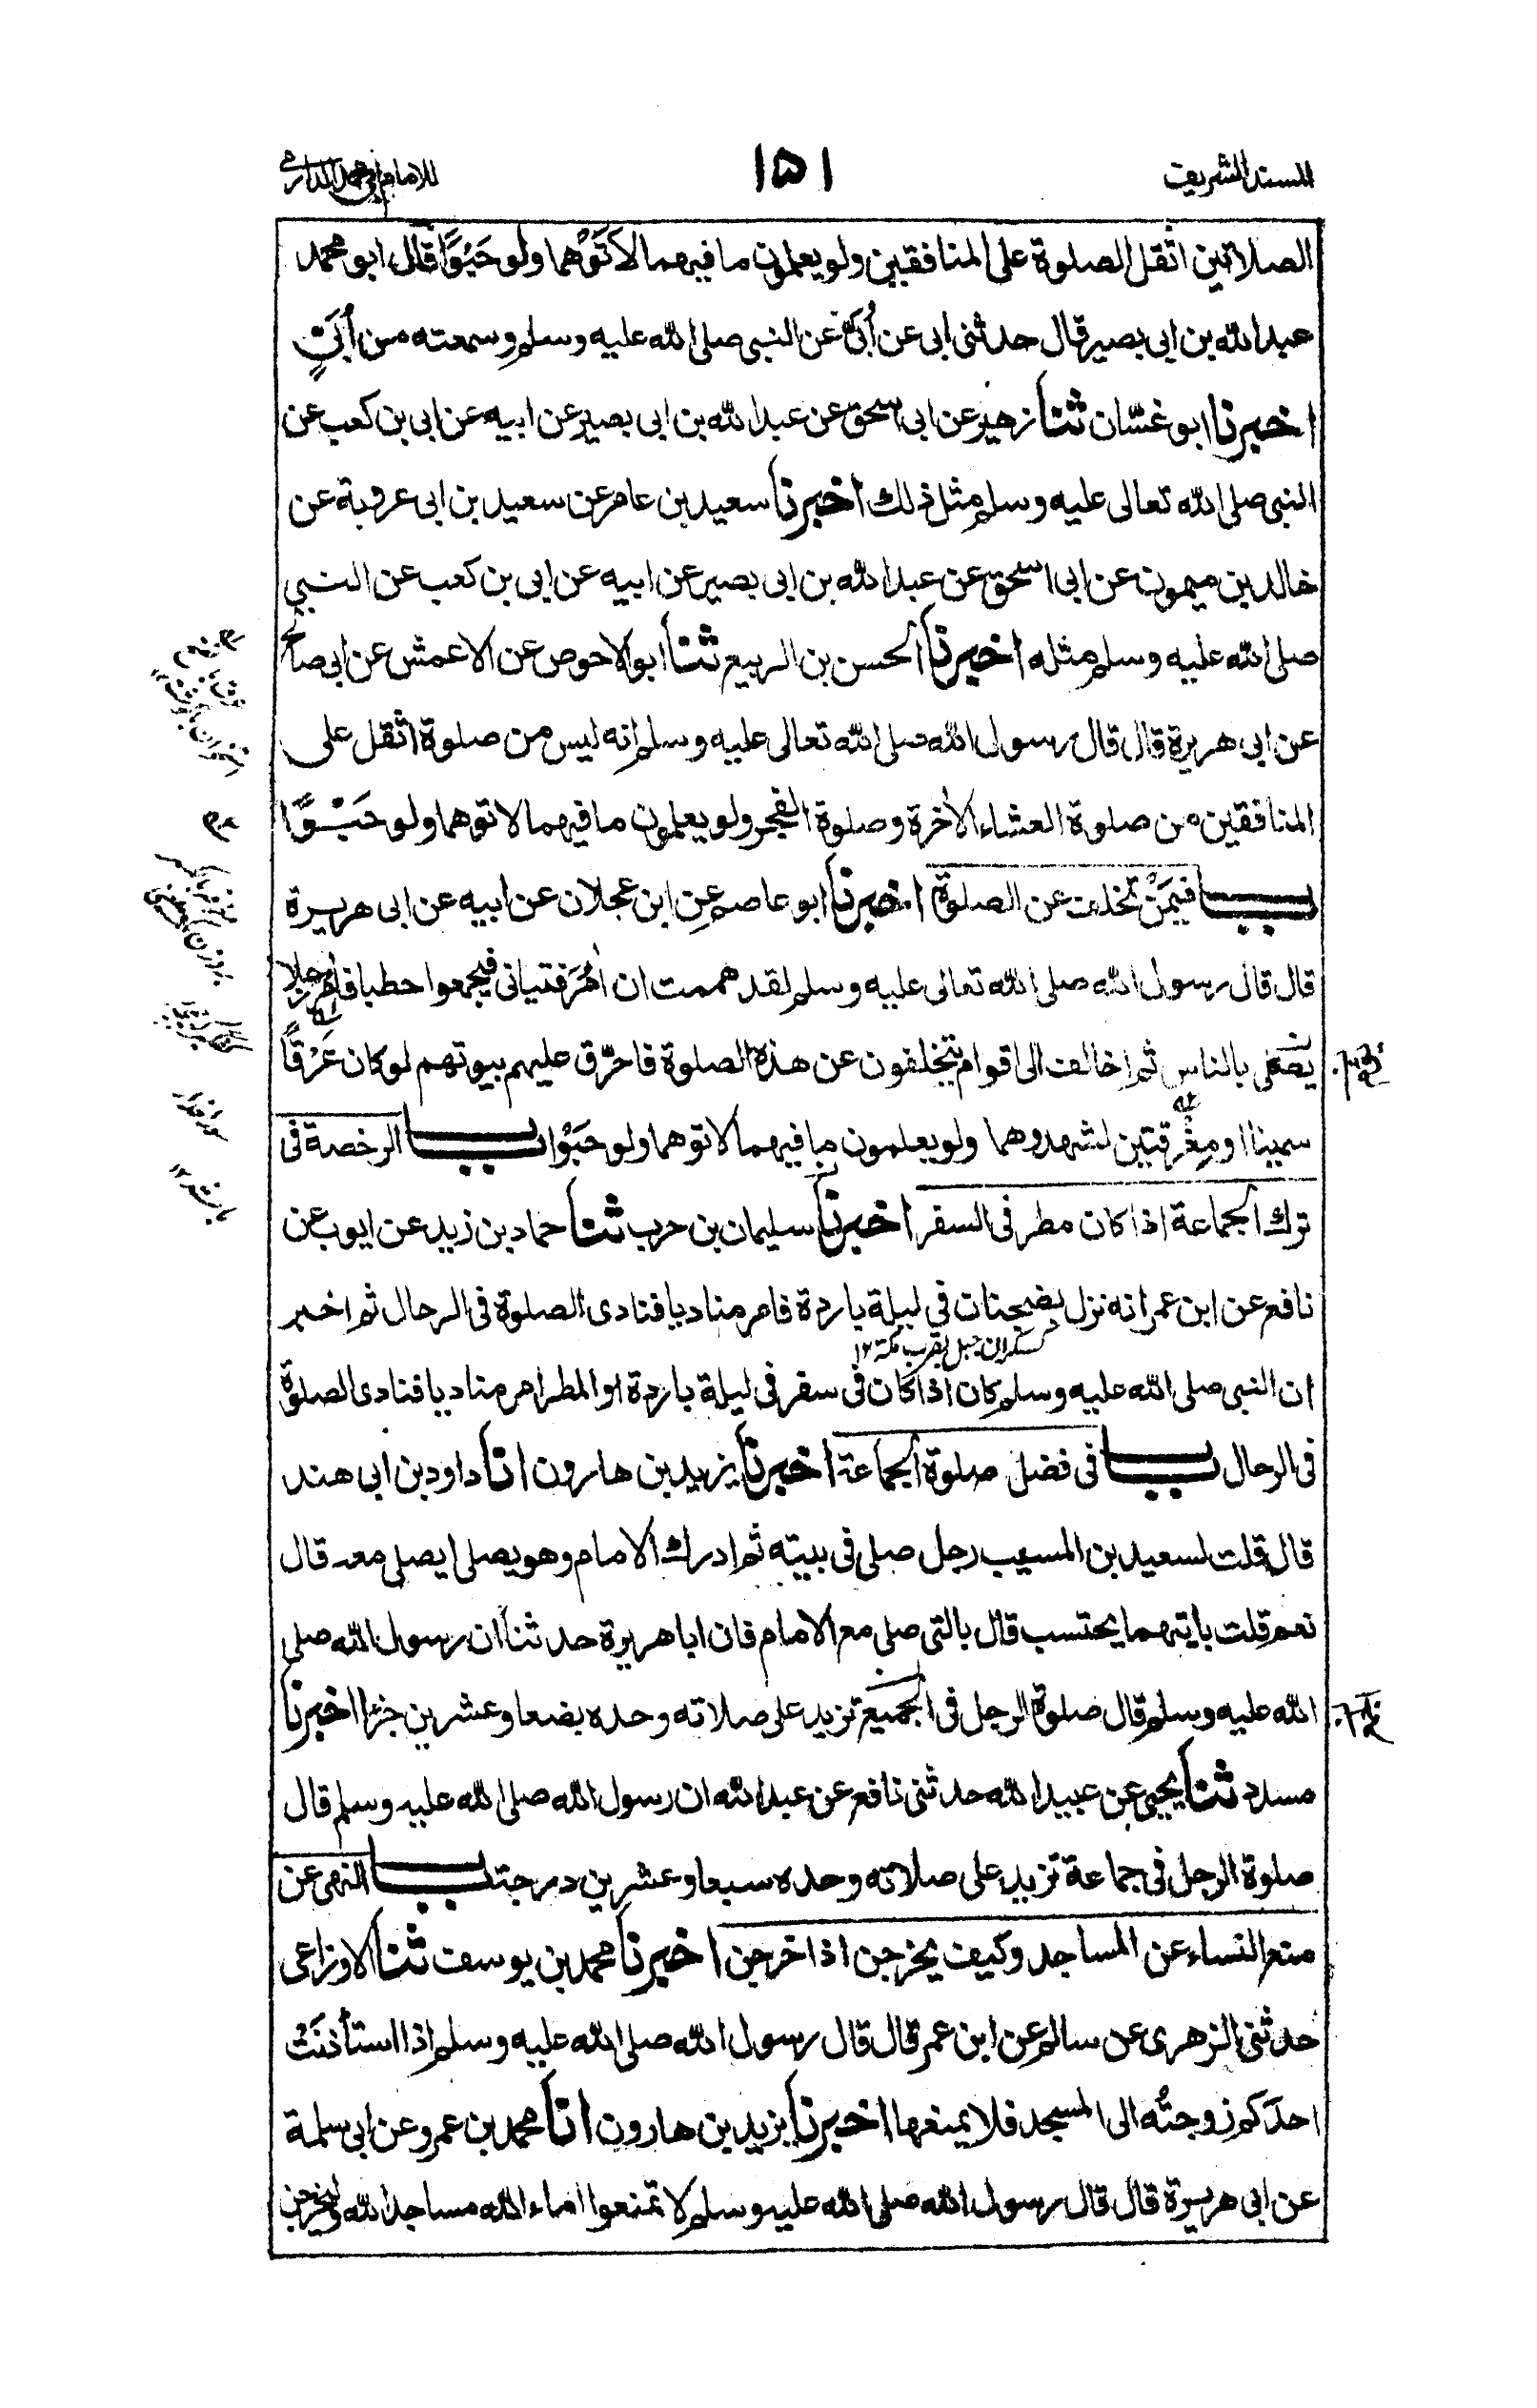 المسند الشريف
١٥١
للامام ابي محمد الدارمي
الصلاتين اثقل الصلوة على المنافقين ولو يعلمون ما فيهما لاَتَوْهما ولو حَبْوًا قال ابو محمد
عبدالله بن ابى بصير قال حدثنى ابى عن أُبَىّ عن النبى صلى الله عليه وسلم وسمعته من أُبَىٍّ
اخبرنا ابو غسّان ثنا زهير عن ابى اسحق عن عبدالله بن ابى بصير عن ابيه عن ابى بن كعب عن
النبى صلى الله تعالى عليه وسلم مثل ذلك اخبرنا سعيد بن عامر عن سعيد بن ابى عروبة عن
خالد بن ميمون عن ابى اسحق عن عبدالله بن ابى بصير عن ابيه عن ابى بن كعب عن النبى
صلى الله عليه وسلم مثله اخبرنا الحسن بن الربيع ثنا ابو الاحوص عن الاعمش عن ابى صالح
عن ابى هريرة قال قال رسول الله صلى الله تعالى عليه وسلم انه ليس من صلوة اثقل على
المنافقين من صلوة العشاء الأخرة وصلوة الفجر ولو يعلمون ما فيهما لاتوهما ولو حَبْوًا
باب فيمَنْ تخلف عن الصلوة اخبرنا ابو عاصم عن ابن عجلان عن ابيه عن ابى هريرة
قال قال رسول الله صلى الله تعالى عليه وسلم لقد هممت ان اٰمُرَ فتيانى فيجمعوا حطبا فاٰمر رجلا
يصلى بالناس ثم اخالف الى اقوام يتخلفون عن هذه الصلوة فاحرّق عليهم بيوتهم لو كان عَرْقًا
سمينا او مِغْرقتين لشهدوهما ولو يعلمون ما فيهما لاتوهما ولو حَبْوًا باب الرخصة فى
ترك الجماعة اذا كان مطر فى السفر اخبرنا سليمان بن حرب ثنا حماد بن زيد عن ايوب عن
نافع عن ابن عمر انه نزل بضجنان فى ليلة باردة فامر مناديا فنادى الصلوة فى الرحال ثم اخبر
كسكران جبل بقرب مكة ١٢
ان النبى صلى الله عليه وسلم كان اذا كان فى سفر فى ليلة باردة او المطر امر مناديا فنادى الصلوة
فى الرحال باب فى فضل صلوة الجماعة اخبرنا يزيد بن هارون انا داود بن ابى هند
قال قلت لسعيد بن المسيب رجل صلى فى بيته ثم ادرك الامام وهو يصلى ايصلى معه قال
نعم قلت بايتهما يحتسب قال بالتى صلى مع الامام فان ابا هريرة حدثنا ان رسول الله صلى
الله عليه وسلم قال صلوة الرجل فى الجميع تزيد على صلاته وحده بضعا وعشرين جزا اخبرنا
مسدد ثنا يحيى عن عبيد الله حدثنى نافع عن عبدالله ان رسول الله صلى الله عليه وسلم قال
صلوة الرجل فى جماعة تزيد على صلاته وحده سبعا وعشرين درجة باب النهى عن
منع النساء عن المساجد وكيف يخرجن اذا خرجن اخبرنا محمد بن يوسف ثنا الاوزاعى
حدثنى الزهرى عن سالم عن ابن عمر قال قال رسول الله صلى الله عليه وسلم اذا استأذنَتْ
احدَكم زوجتُه الى المسجد فلا يمنعها اخبرنا يزيد بن هارون انا محمد بن عمرو عن ابى سلمة
عن ابى هريرة قال قال رسول الله صلى الله عليه وسلم لا تمنعوا اماء الله مساجد الله وليخرجن